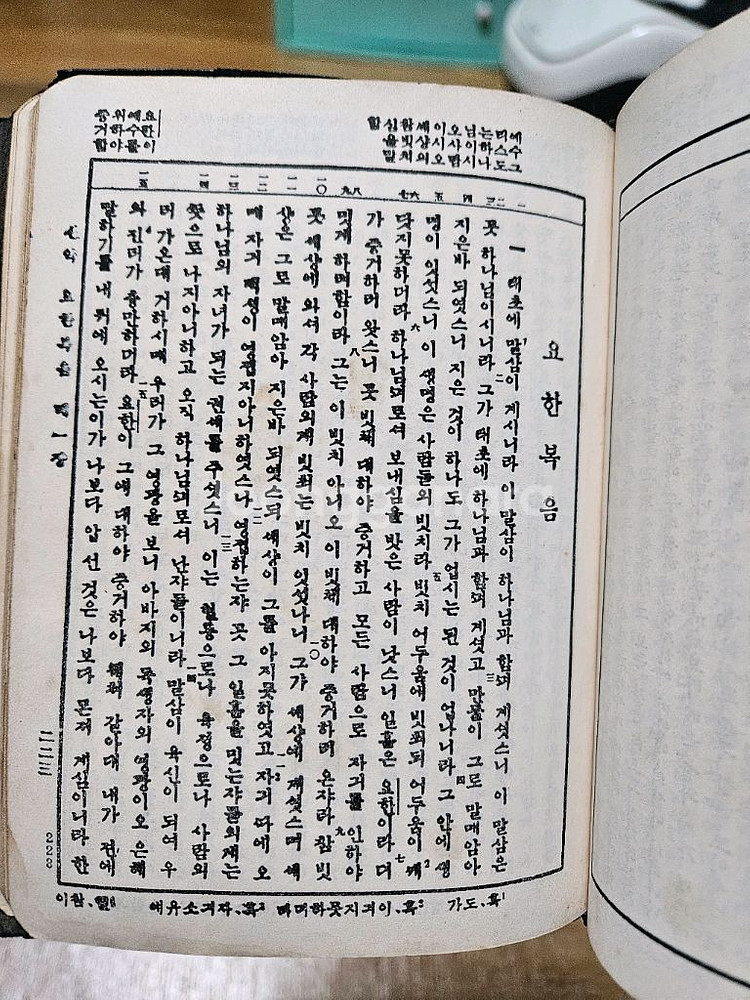 예수그리스도는하나님이시오사람이시오쌔상의참빗치심을말함
요한이예수를위하야증거함
一 二 三 四 五 六 七 八 九 一〇 一一 一二 一三 一四 一五
요한복음
一 태초에 말삼이 계시니라 이 말삼이 하나님과 함끠 계셧스니 이 말삼은
곳 하나님이시니라 二 그가 태초에 하나님과 함끠 계셧고 三 만물이 그로 말매암아
지은바 되엿스니 지은 것이 하나도 그가 업시는 된 것이 업나니라 四 그 안에 생
명이 잇섯스니 이 생명은 사람들의 빗치라 五 빗치 어두움에 빗최되 어두움이 쌔
닷지못하더라 六 하나님끠로셔 보내심을 밧은 사람이 낫스니 일홈은 요한이라 七 뎌
가 증거하며 왓스니 곳 빗체 대하야 증거하고 모든 사람으로 자긔를 인하야
밋게 하며함이라 八 그는 이 빗치 아니오 이 빗체 대하야 증거하며 온쟈라 九 참 빗
곳 세상에 와셔 각 사람의게 빗최는 빗치 잇섯나니 一〇 그가 세상에 계셧스며 세
상은 그로 말매암아 지은바 되엿스되 세상이 그를 아지못하엿고 一一 자긔 따에 오
매 자긔 백셩이 영졉지아니하엿스나 一二 영졉하는쟈 곳 그 일홈을 밋는쟈들의게는
하나님의 자녀가 되는 권세를 주셧스니 一三 이는 혈통으로나 육졍으로나 사람의
뜻으로 나지아니하고 오직 하나님끠로셔 난쟈들이니라 一四 말삼이 육신이 되여 우
리 가온대 거하시매 우리가 그 영광을 보니 아바지의 독생자의 영광이오 은혜
와 진리가 츙만하더라 一五 요한이 그에 대하야 증거하야 웨쳐 갈아대 내가 젼에
말하기를 내 뒤에 오시는이가 나보다 압 선 것은 나보다 몬져 계심이니라 한
신약 요한복음 뎨一장
二二三
223
1혹、도가 2혹、이긔지못하며 3혹、자긔소유에 4헬、참이